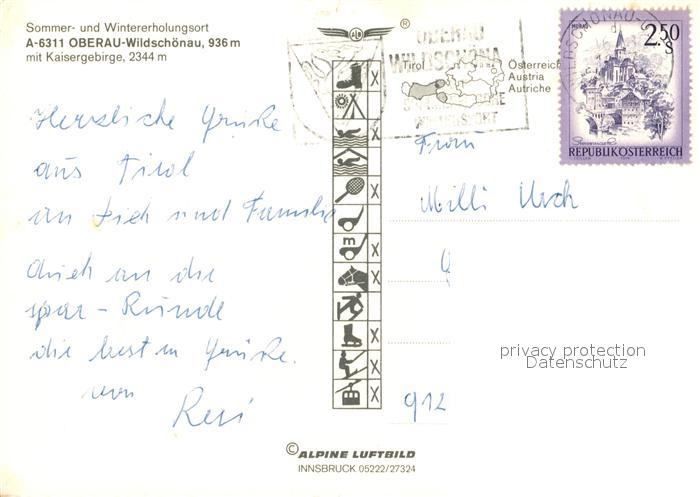 Sommer- und Wintererholungsort
A-6311 OBERAU-Wildschönau, 936 m
mit Kaisergebirge, 2344 m
Herzliche Grüße
aus Tirol
an Dich und Familie
Auch an die
spar-Runde
die besten Grüße.
von
Resi
®
OBERAU
WILDSCHÖNAU
Tirol
Österreich
Austria
Autriche
2.50
S
REPUBLIK ÖSTERREICH
Frau
Milli
912
privacy protection
Datenschutz
© ALPINE LUFTBILD
INNSBRUCK 05222/27324